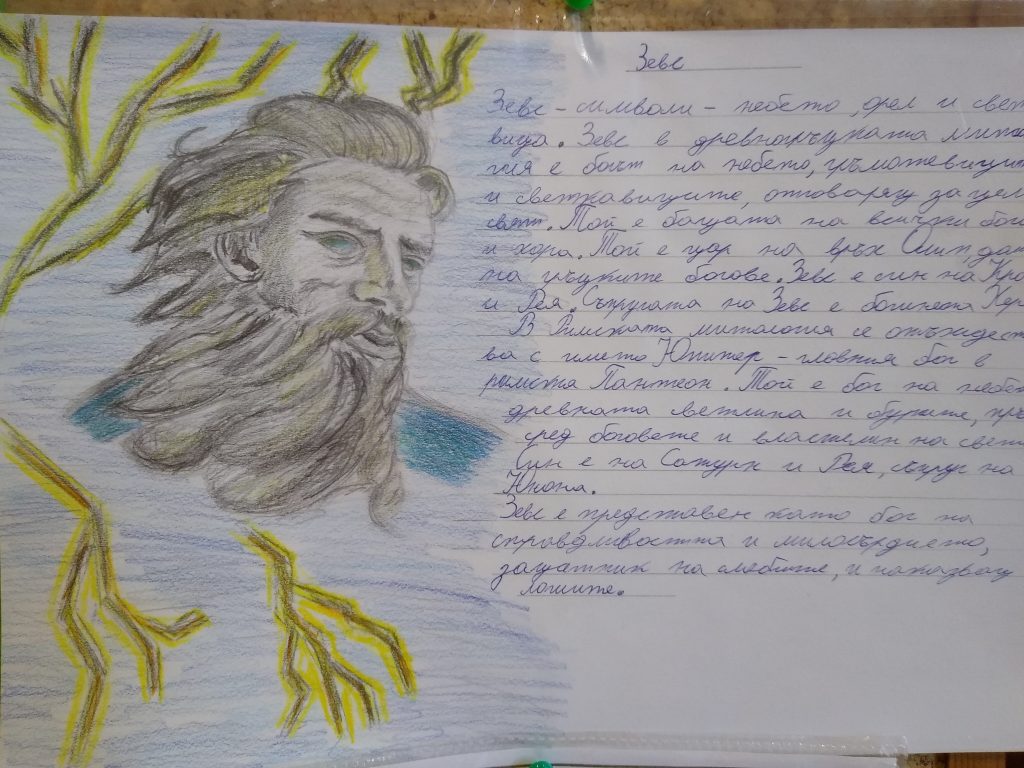 Зевс
Зевс - символи - небето, орел и свет
вида. Зевс в древногръцката мито
гия е богът на небето, гръмотевиците
и светкавиците, отговарящ за цел
свят. Той е бащата на всички бог
и хора. Той е цар на връх Олимп, до
на гръцките богове. Зевс е син на Кро
и Рея. Съпругата на Зевс е богинята Хер
В Римската митология се отъждест
ва с името Юпитер - главния бог в
римския Пантеон. Той е бог на небе
древната светлина и бурите, пръ
сред боговете и властелин на свет
Син е на Сатурн и Рея, съпруг на
Юнона.
Зевс е представен като бог на
справедливостта и милосърдието,
защитник на слабите, и наказващ
лошите.